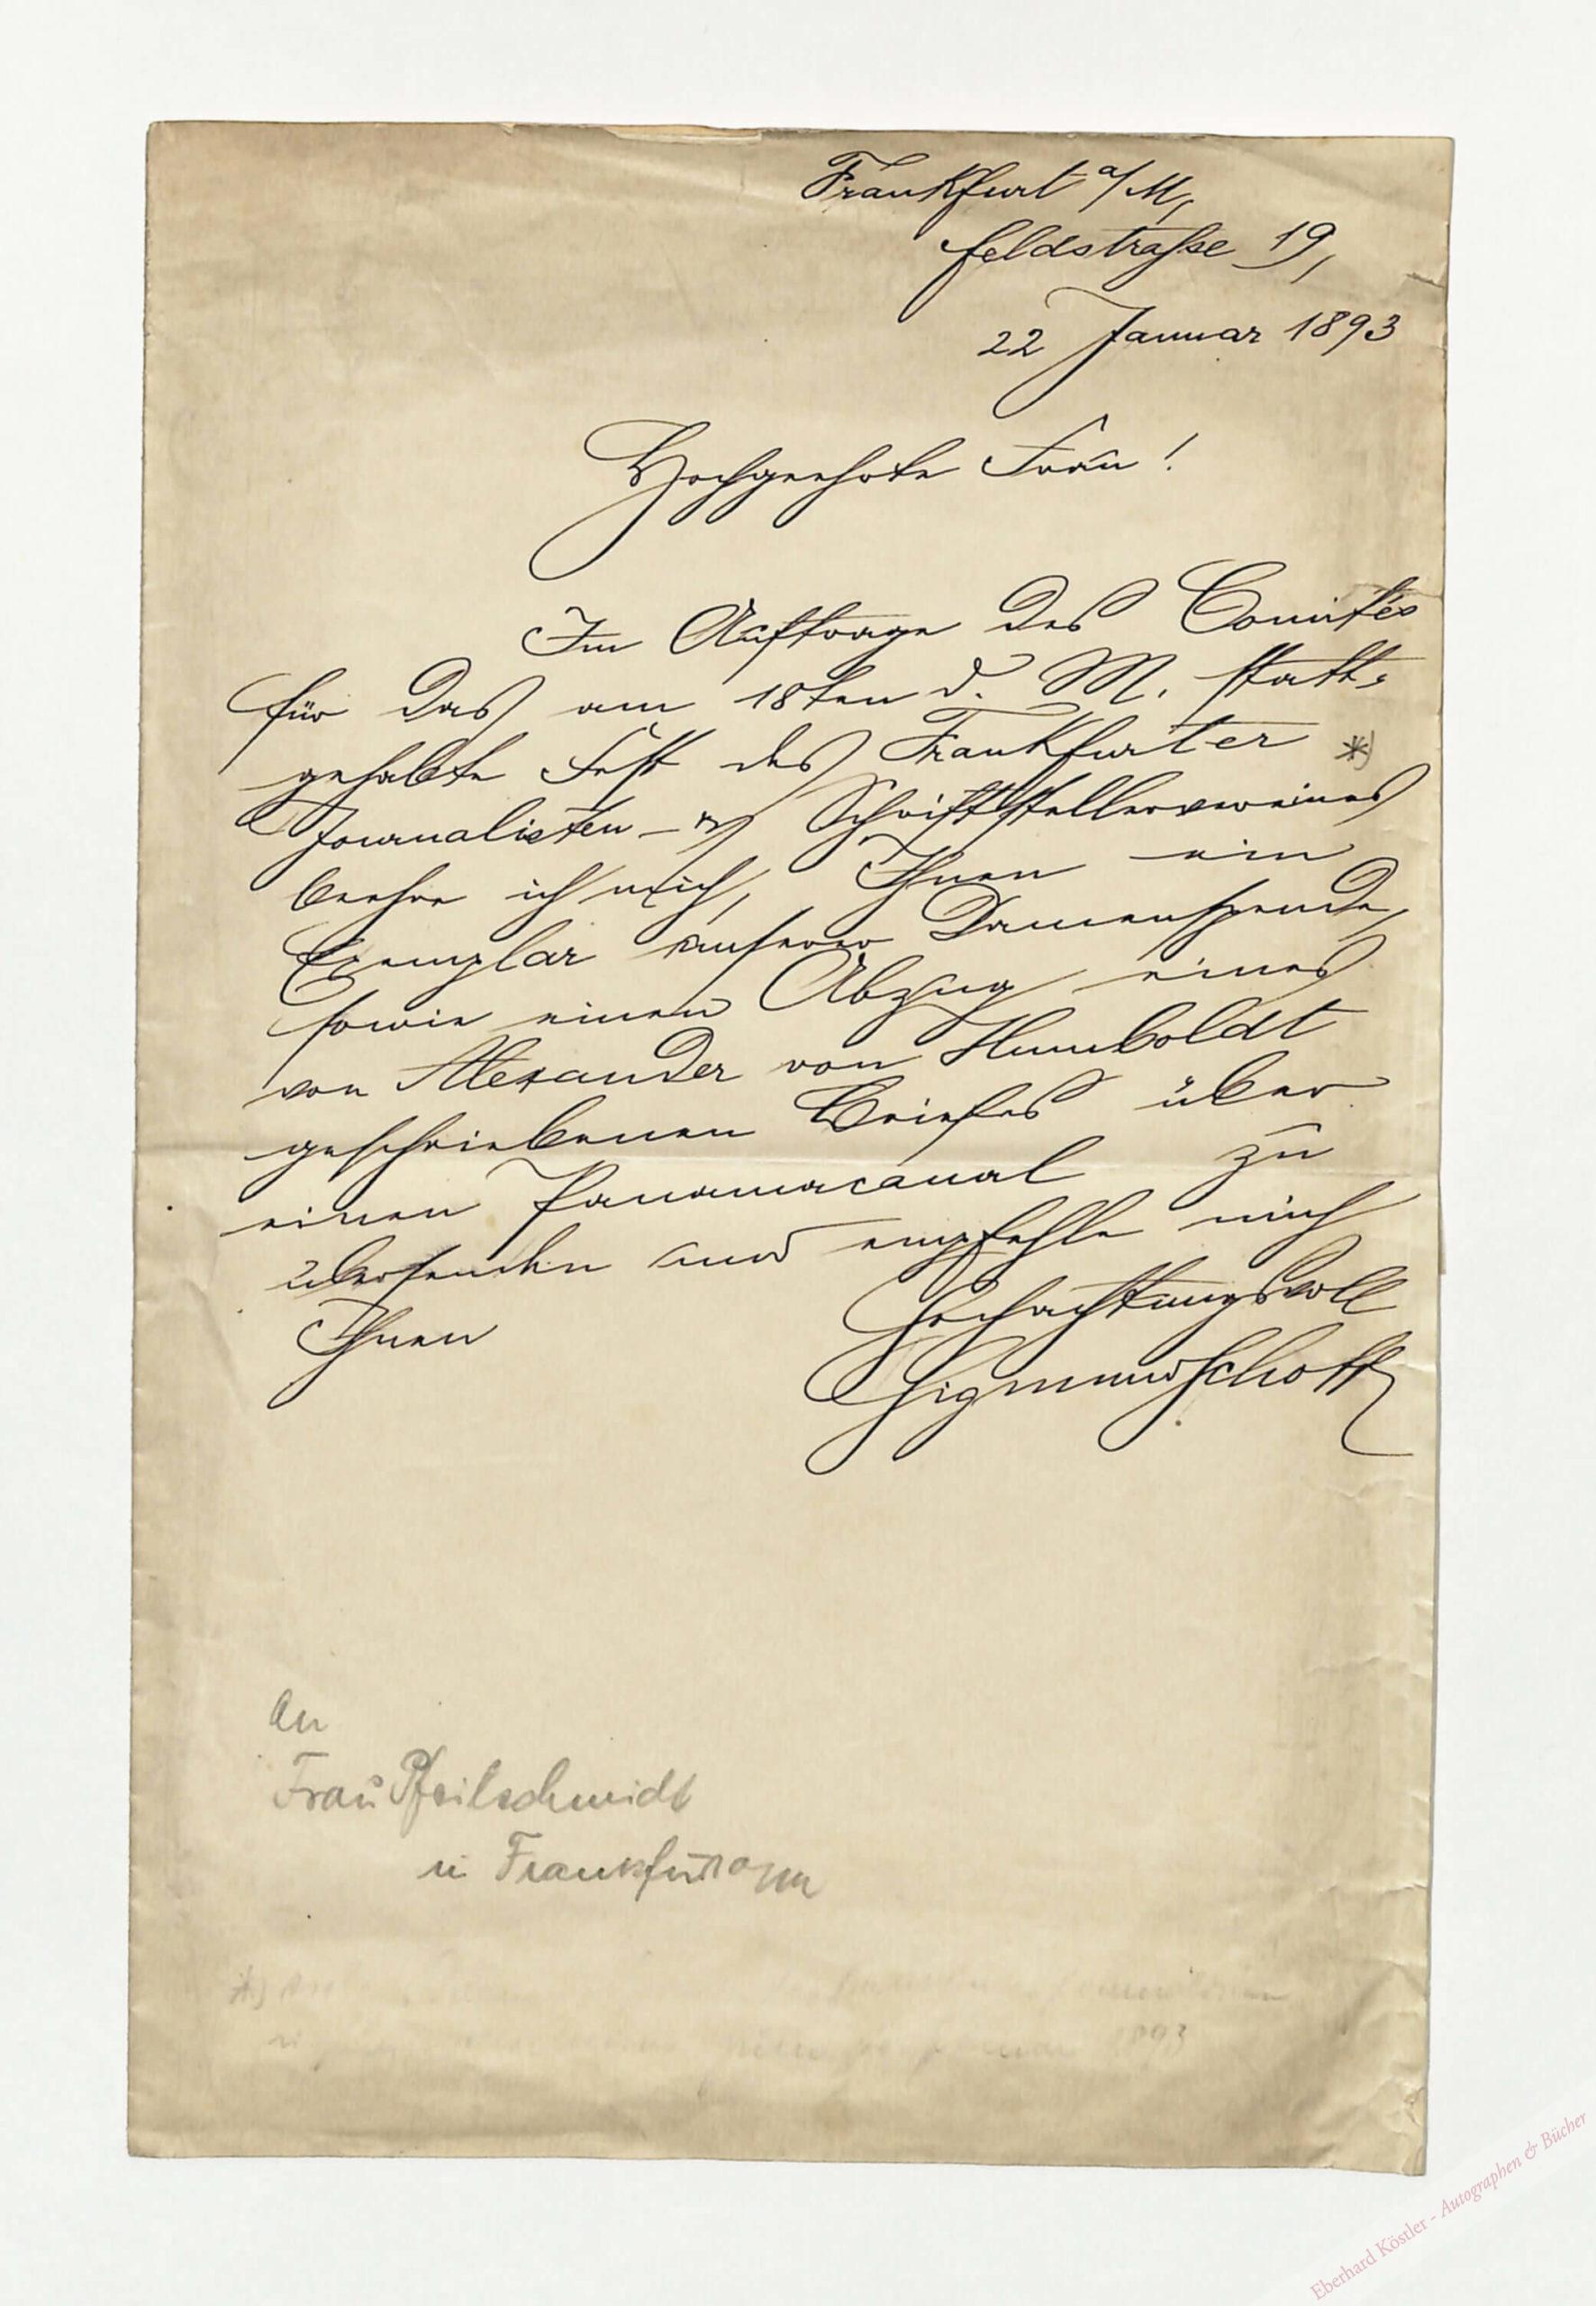 Frankfurt a/M,
Feldstraße 19,
22 Januar 1893
Hochgeehrte Frau!
Im Auftrage des Comités
für das am 18ten d. M. statt-
gehabte Fest des Frankfurter *)
Journalisten- & Schriftstellervereines
beehre ich mich, Ihnen ein
Exemplar unserer Damenspende,
sowie einen Abzug eines
von Alexander von Humboldt
geschriebenen Briefes über
einen Panamacanal zu
übersenden und empfehle mich
Ihnen hochachtungsvoll
Sigmund Schott
An
Frau Pfeilschmidt
in Frankfurt a/M
*)
1893
Eberhard Köstler - Autographen & Bücher